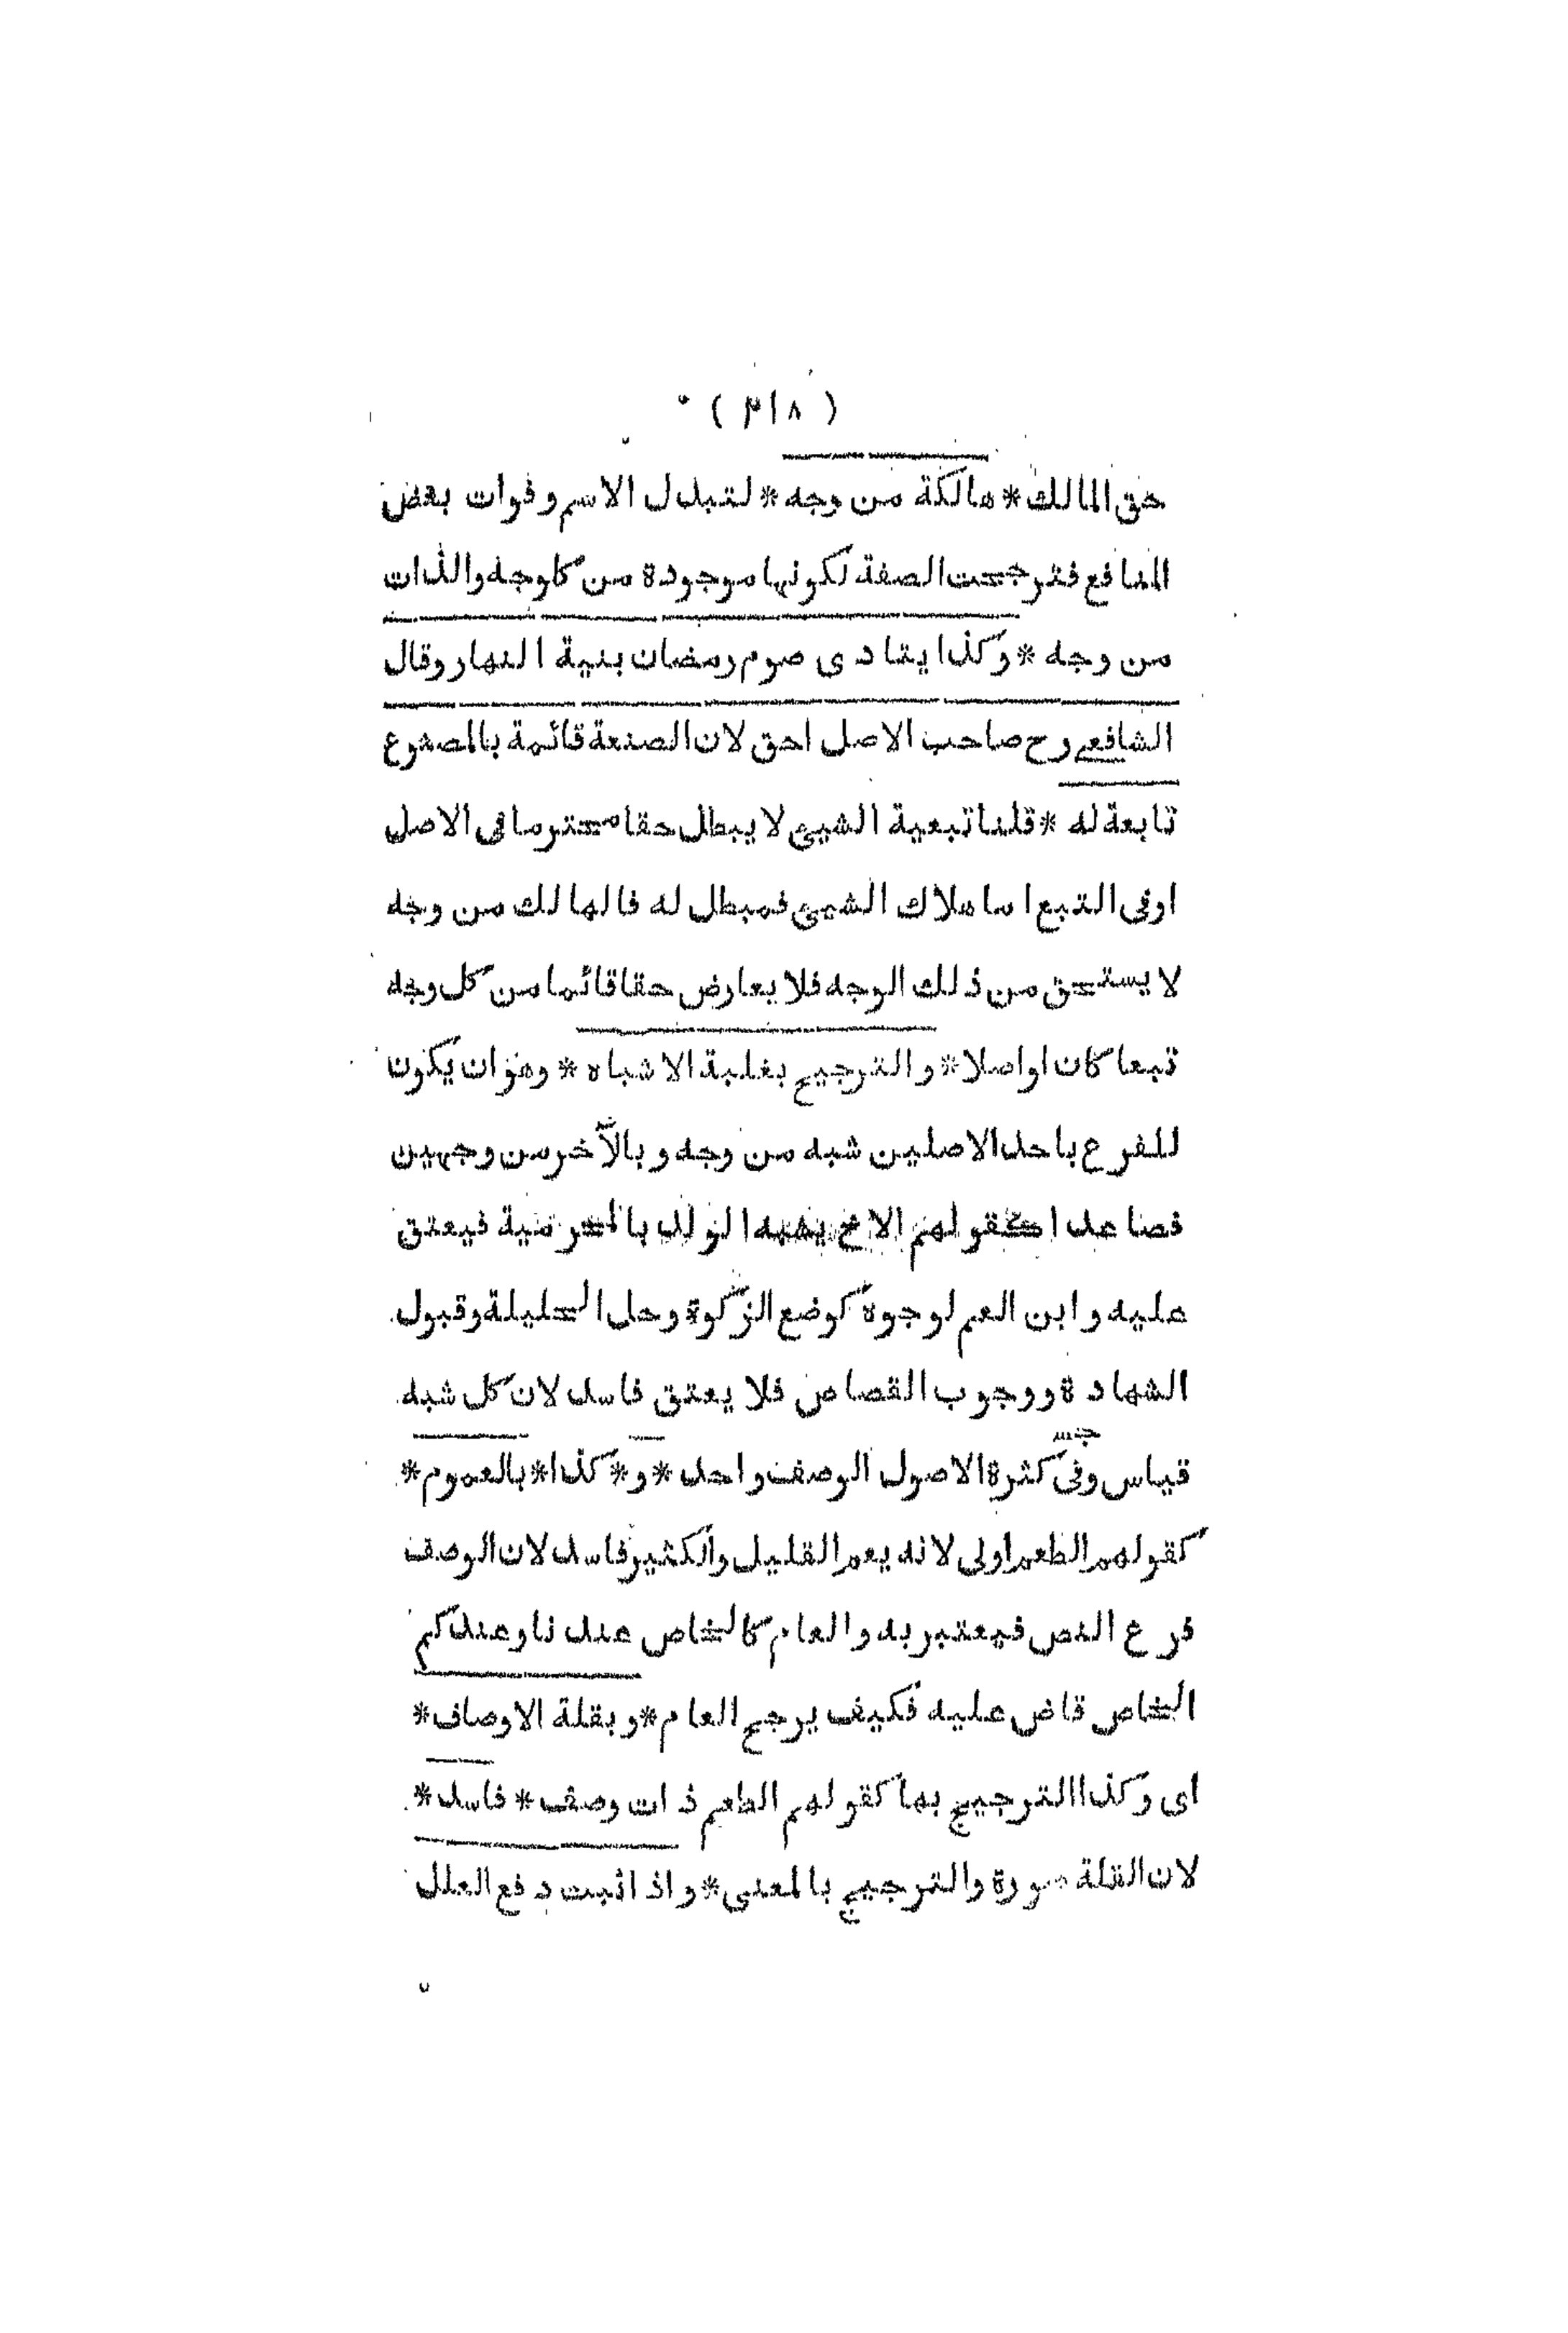 ( ٣١٨ )
حق المالك * هالكة من وجه * لتبدل الاسم وفوات بعض
المنافع فترجحت الصفة لكونها موجودة من كل وجه والذات
من وجه * وكذا يتادى صوم رمضان بنية النهار وقال
الشافعي رح صاحب الاصل احق لان الصنعة قائمة بالمصنوع
تابعة له * قلنا تبعية الشيئ لا يبطل حقا محترما في الاصل
او في التبع اما هلاك الشيئ فمبطل له فالهالك من وجه
لا يستحق من ذلك الوجه فلا يعارض حقا قائما من كل وجه
تبعا كان او اصلا * والترجيح بغلبة الاشباه * وهو ان يكون
للفرع باحد الاصلين شبه من وجه و بالآخر من وجهين
فصاعدا كقولهم الاخ يشبه الولد بالمحرمية فيعتق
عليه وابن العم لوجوه كوضع الزكوة وحل الحليلة وقبول
الشهادة ووجوب القصاص فلا يعتق فاسد لان كل شبه
قياس وفي كثرة الاصول الوصف واحد * و * كذا * بالعموم *
كقولهم الطعم اولى لانه يعم القليل والكثير فاسد لان الوصف
فرع النص فيعتبر به والعام كالخاص عندنا وعندكم
الخاص قاض عليه فكيف يرجح العام * و بقلة الاوصاف *
اى وكذا الترجيح بها كقولهم الطعم ذات وصف * فاسد *
لان القلة صورة والترجيح بالمعنى * واذا ثبت دفع العلل